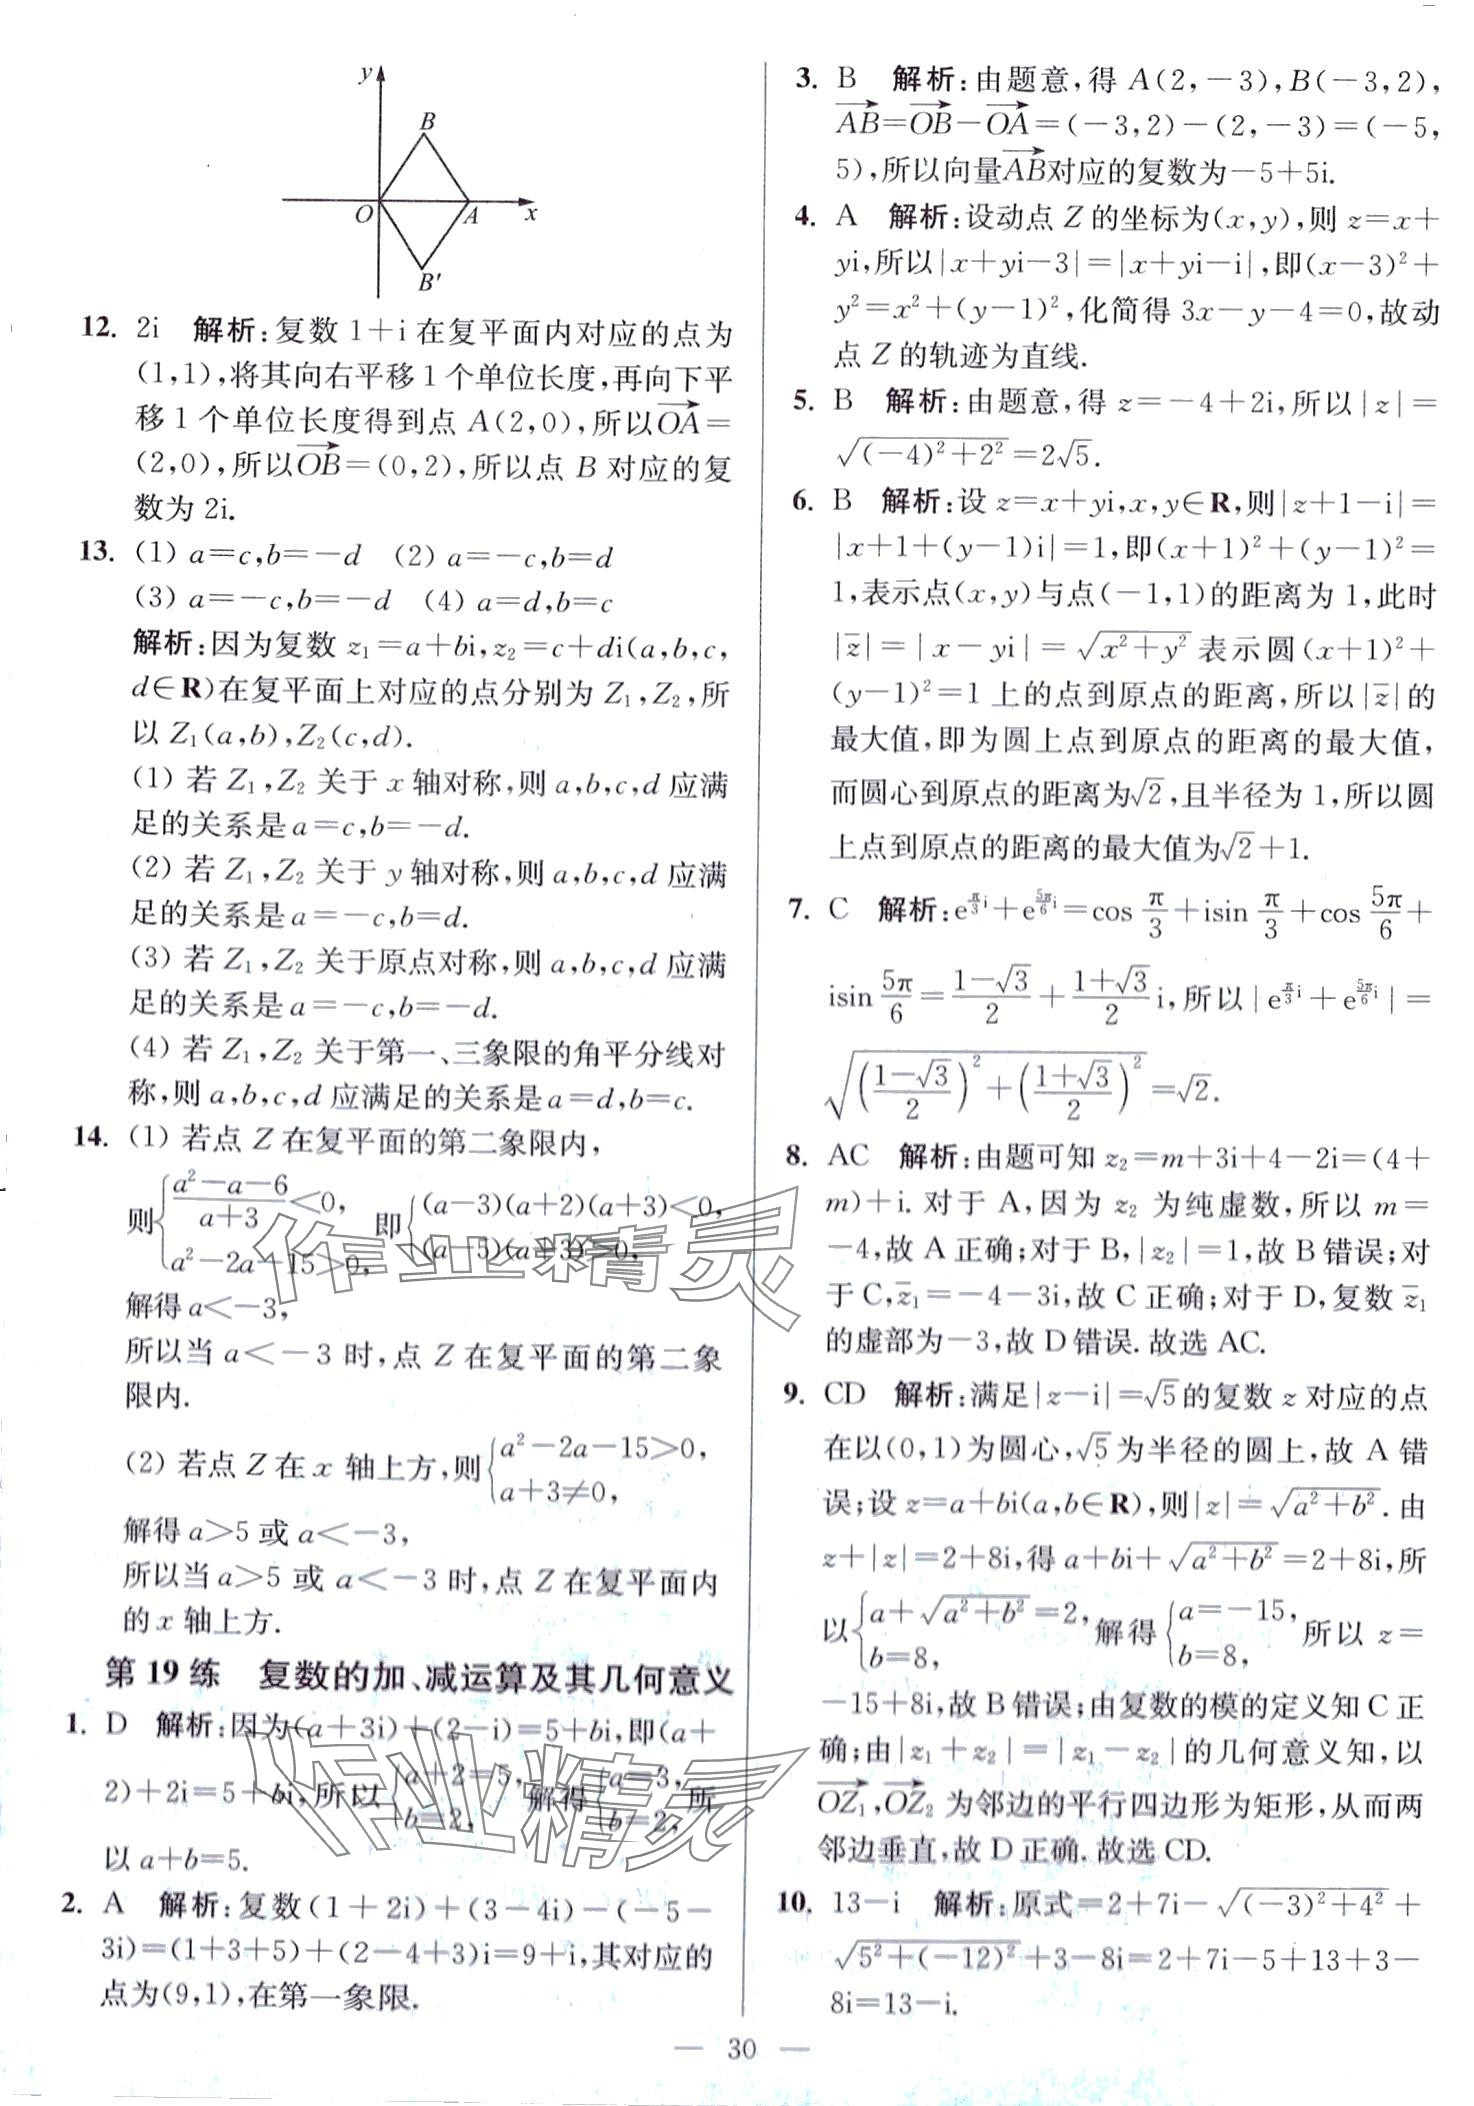 y
B
O
A
x
B′
12. 2i 解析:复数 1+i 在复平面内对应的点为
(1,1),将其向右平移 1 个单位长度,再向下平
移 1 个单位长度得到点 A(2,0),所以$\overrightarrow{OA}$=
(2,0),所以$\overrightarrow{OB}$=(0,2),所以点 B 对应的复
数为 2i.
13. (1) a=c,b=-d (2) a=-c,b=d
(3) a=-c,b=-d (4) a=d,b=c
解析:因为复数 z₁=a+bi,z₂=c+di(a,b,c,
d∈R)在复平面上对应的点分别为 Z₁,Z₂,所
以 Z₁(a,b),Z₂(c,d).
(1) 若 Z₁,Z₂ 关于 x 轴对称,则 a,b,c,d 应满
足的关系是 a=c,b=-d.
(2) 若 Z₁,Z₂ 关于 y 轴对称,则 a,b,c,d 应满
足的关系是 a=-c,b=d.
(3) 若 Z₁,Z₂ 关于原点对称,则 a,b,c,d 应满
足的关系是 a=-c,b=-d.
(4) 若 Z₁,Z₂ 关于第一、三象限的角平分线对
称,则 a,b,c,d 应满足的关系是 a=d,b=c.
14. (1) 若点 Z 在复平面的第二象限内,
则$\begin{cases}\frac{a^2-a-6}{a+3}<0,\\a^2-2a-15>0,\end{cases}$ 即$\begin{cases}(a-3)(a+2)(a+3)<0,\\(a-5)(a+3)>0,\end{cases}$
解得 a<-3,
所以当 a<-3 时,点 Z 在复平面的第二象
限内.
(2) 若点 Z 在 x 轴上方,则$\begin{cases}a^2-2a-15>0,\\a+3\neq0,\end{cases}$
解得 a>5 或 a<-3,
所以当 a>5 或 a<-3 时,点 Z 在复平面内
的 x 轴上方.
第 19 练 复数的加、减运算及其几何意义
1. D 解析:因为(a+3i)+(2-i)=5+bi,即(a+
2)+2i=5+bi,所以$\begin{cases}a+2=5,\\b=2,\end{cases}$解得$\begin{cases}a=3,\\b=2,\end{cases}$所
以 a+b=5.
2. A 解析:复数(1+2i)+(3-4i)-(-5-
3i)=(1+3+5)+(2-4+3)i=9+i,其对应的
点为(9,1),在第一象限.
3. B 解析:由题意,得 A(2,-3),B(-3,2),
$\overrightarrow{AB}$=$\overrightarrow{OB}$-$\overrightarrow{OA}$=(-3,2)-(2,-3)=(-5,
5),所以向量$\overrightarrow{AB}$对应的复数为-5+5i.
4. A 解析:设动点 Z 的坐标为(x,y),则 z=x+
yi,所以|x+yi-3|=|x+yi-i|,即(x-3)²+
y²=x²+(y-1)²,化简得 3x-y-4=0,故动
点 Z 的轨迹为直线.
5. B 解析:由题意,得 z=-4+2i,所以|z|=
$\sqrt{(-4)^2+2^2}=2\sqrt{5}$.
6. B 解析:设 z=x+yi,x,y∈R,则|z+1-i|=
|x+1+(y-1)i|=1,即(x+1)²+(y-1)²=
1,表示点(x,y)与点(-1,1)的距离为 1,此时
$|\overline{z}|=|x-yi|=\sqrt{x^2+y^2}$ 表示圆(x+1)²+
(y-1)²=1 上的点到原点的距离,所以$|\overline{z}|$的
最大值,即为圆上点到原点的距离的最大值,
而圆心到原点的距离为$\sqrt{2}$,且半径为 1,所以圆
上点到原点的距离的最大值为$\sqrt{2}$+1.
7. C 解析:$e^{\frac{\pi}{3}i}+e^{\frac{5\pi}{6}i}=\cos\frac{\pi}{3}+i\sin\frac{\pi}{3}+\cos\frac{5\pi}{6}+$
$i\sin\frac{5\pi}{6}=\frac{1-\sqrt{3}}{2}+\frac{1+\sqrt{3}}{2}i$,所以$|e^{\frac{\pi}{3}i}+e^{\frac{5\pi}{6}i}|=$
$\sqrt{\left(\frac{1-\sqrt{3}}{2}\right)^2+\left(\frac{1+\sqrt{3}}{2}\right)^2}=\sqrt{2}$.
8. AC 解析:由题可知 z₂=m+3i+4-2i=(4+
m)+i. 对于 A,因为 z₂ 为纯虚数,所以 m=
-4,故 A 正确;对于 B,|z₂|=1,故 B 错误;对
于 C,$\overline{z}_1$=-4-3i,故 C 正确;对于 D,复数 $\overline{z}_1$
的虚部为-3,故 D 错误. 故选 AC.
9. CD 解析:满足|z-i|=$\sqrt{5}$的复数 z 对应的点
在以(0,1)为圆心,$\sqrt{5}$为半径的圆上,故 A 错
误;设 z=a+bi(a,b∈R),则|z|=$\sqrt{a^2+b^2}$. 由
z+|z|=2+8i,得 a+bi+$\sqrt{a^2+b^2}$=2+8i,所
以$\begin{cases}a+\sqrt{a^2+b^2}=2,\\b=8,\end{cases}$解得$\begin{cases}a=-15,\\b=8,\end{cases}$所以 z=
-15+8i,故 B 错误;由复数的模的定义知 C 正
确;由|z₁+z₂|=|z₁-z₂|的几何意义知,以
$\overrightarrow{OZ_1}$,$\overrightarrow{OZ_2}$ 为邻边的平行四边形为矩形,从而两
邻边垂直,故 D 正确. 故选 CD.
10. 13-i 解析:原式=2+7i-$\sqrt{(-3)^2+4^2}$+
$\sqrt{5^2+(-12)^2}$+3-8i=2+7i-5+13+3-
8i=13-i.
作业精灵
作业精灵
— 30 —